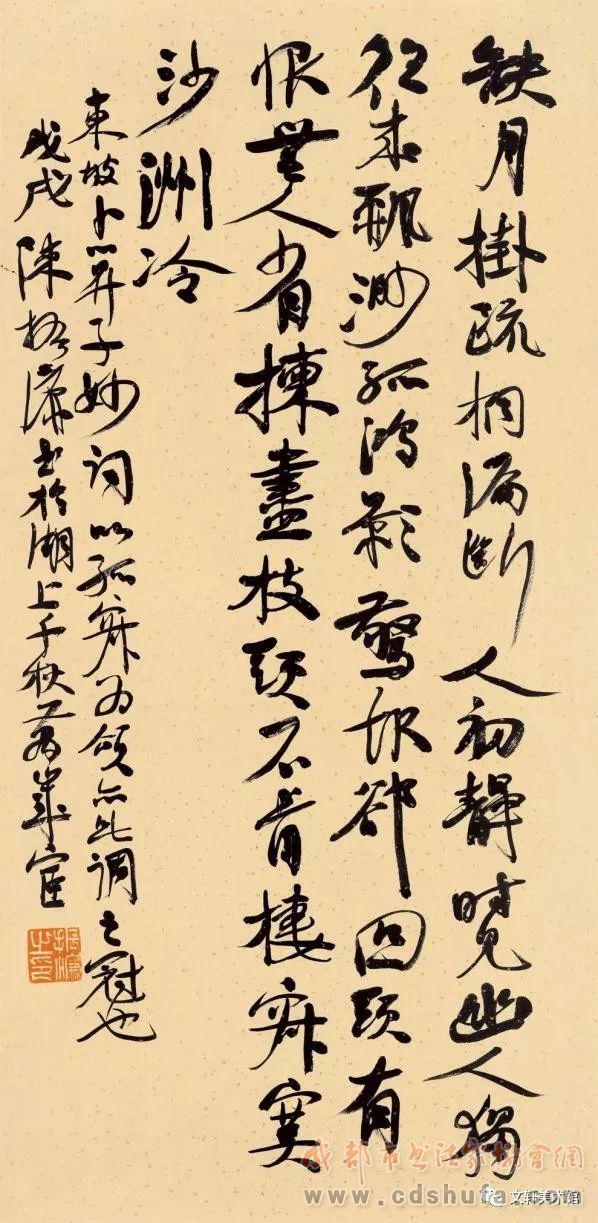 缺月掛疏桐漏斷人初靜時見幽人獨
往來飄渺孤鴻影驚起卻回頭有
恨無人省揀盡枝頭不肯棲寂寞
沙洲冷
東坡卜算子妙詞以孤寂為領亦此調之冠也
戊戌陳振濂書於湖上千秋萬歲宧
振濂之印
成都市书法家协会網
www.cdshufa.com
文轩美术馆